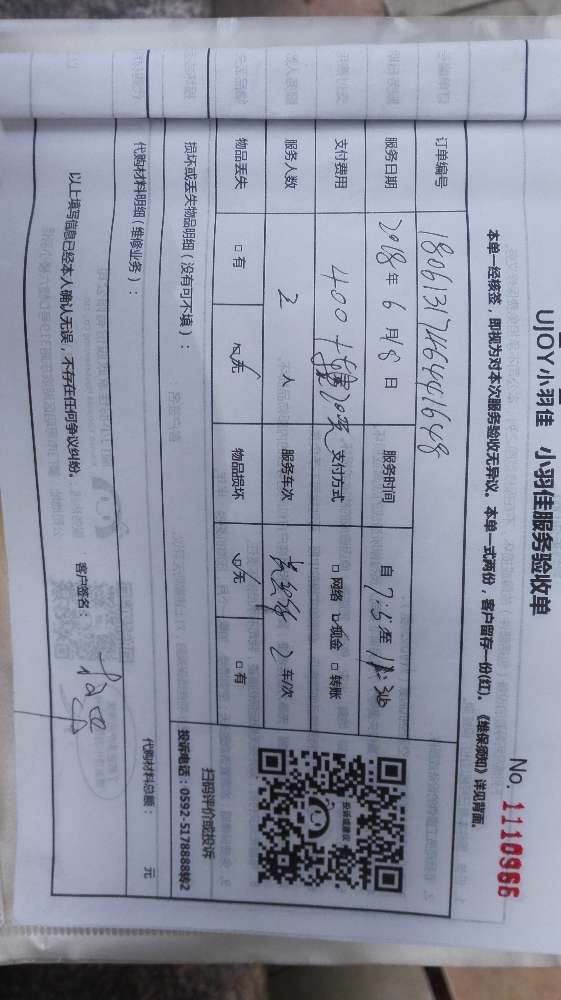 UJOY小羽佳 小羽佳服务验收单
No. 1110966
本单一经核签，即视为对本次服务验收无异议。本单一式两份，客户留存一份(红)。《维保须知》详见背面。
订单编号 1806131746441648
服务日期 2018年 6月18日 服务时间 自 7:5 至 11:30
支付费用 400+ 支付方式 □网络 ☑现金 □转账
服务人数 2 人 服务车次 2 车/次
物品丢失 □有 ☑无 物品损坏 ☑无 □有
扫码评价或投诉
投诉电话：0592-5178888转2
投诉或建议
损坏或丢失物品明细（没有可不填）：
代购材料明细（维修业务）： 代购材料总额： 元
以上填写信息已经本人确认无误，不存在任何争议纠纷。 客户签名：